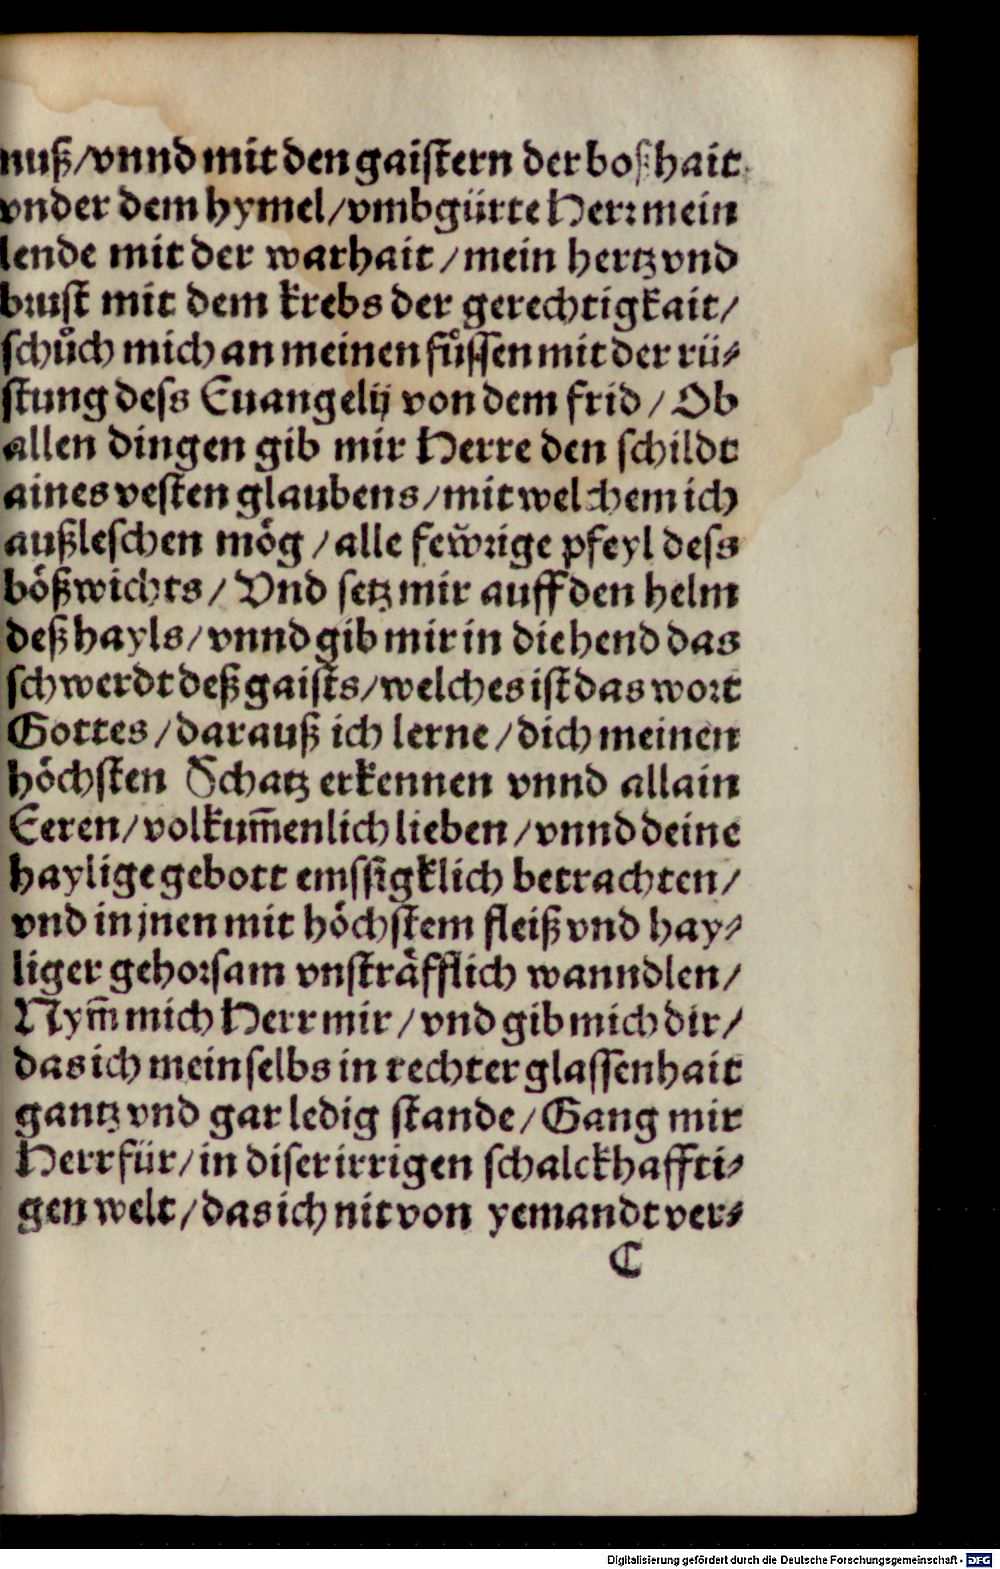 nuß/vnnd mit den gaistern der boßhait
vnder dem hymel/vmbgürte Herr mein
lende mit der warhait/mein hertz vnd
brust mit dem krebs der gerechtigkait/
schůch mich an meinen fůssen mit der rü⸗
stung dess Euangelij von dem frid/Ob
allen dingen gib mir Herre den schildt
aines vesten glaubens/mit welchem ich
außleschen mög/alle few̃rige pfeyl dess
bößwichts/Vnd setz mir auff den helm
deß hayls/vnnd gib mir in die hend das
schwerdt deß gaists/welches ist das wort
Gottes/darauß ich lerne/dich meinen
höchsten Schatz erkennen vnnd allain
Eeren/volkum̃enlich lieben/vnnd deine
haylige gebott emssigklich betrachten/
vnd in jnen mit höchstem fleiß vnd hay⸗
liger gehorsam vnsträfflich wanndlen/
Nym̃ mich Herr mir/vnd gib mich dir/
das ich mein selbs in rechter glassenhait
gantz vnd gar ledig stande/Gang mir
Herr für/in diser irrigen schalckhaffti⸗
gen welt/das ich nit von yemandt ver⸗
C
Digitalisierung gefördert durch die Deutsche Forschungsgemeinschaft - DFG